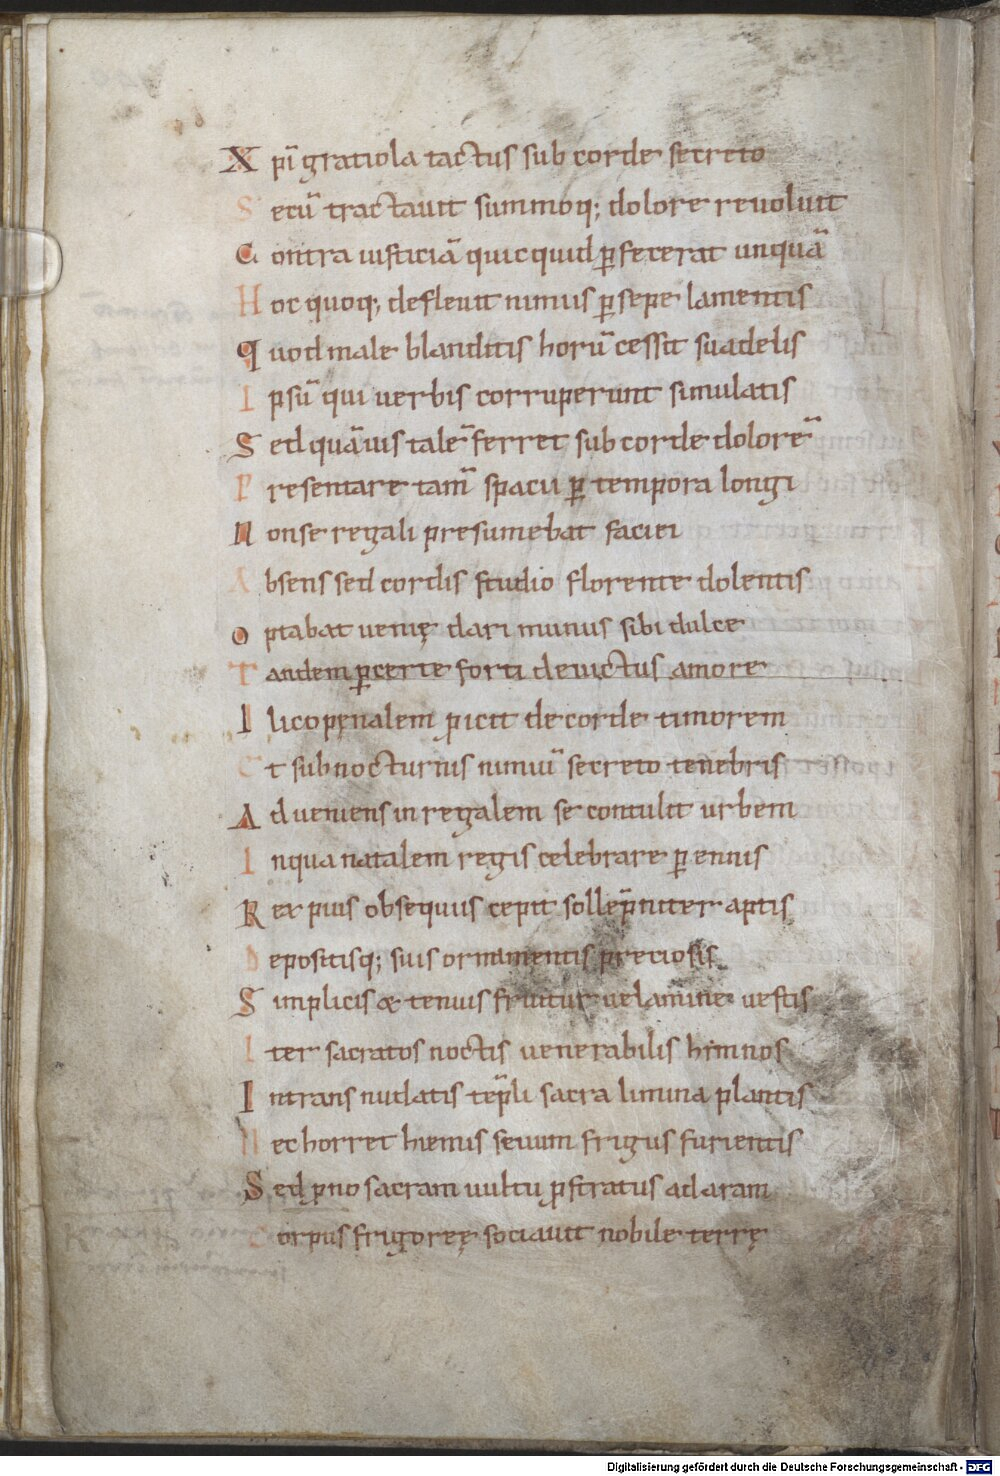 X pi̅ gratiola tactus sub corde secreto
S ecu̅ tractauit summoq; dolore reuoluit
C ontra iusticia̅ quicquid ꝑfecerat unqua̅
H oc quoq; defleuit nimis ꝑsepe lamentis
q uod male blanditis horu̅ cessit suadelis
I psu̅ qui uerbis corruperunt simulatis
S ed qua̅uis tale̅ ferret sub corde dolore̅
P resentare tam̅ spacii ꝑ tempora longi
N on se regali presumebat faciei
A bsens sed cordis studio florente dolentis
O ptabat uenię dari munus sibi dulce
T andem ꝑcerte forti deuictus amore
I lico penalem ꝓicit de corde timorem
E t sub nocturnis nimiu̅ secreto tenebris
A dueniens in regalem se contulit urbem
I nqua natalem regis celebrare ꝑennis
R ex pius obsequiis cepit solle̅pniter aptis
D epositisq; suis ornamentis preciosis
S implicis & tenuis fruitur uelamine uestis
I ter sacratos noctis uenerabilis himnos
I ntrans nudatis te̅pli sacra limina plantis
N ec horret hiemis seuum frigus furientis
S ed ꝓno sacram uultu ꝓstratus ad aram
C orpus frigoreę sociauit nobile terrę
Digitalisierung gefördert durch die Deutsche Forschungsgemeinschaft - DFG